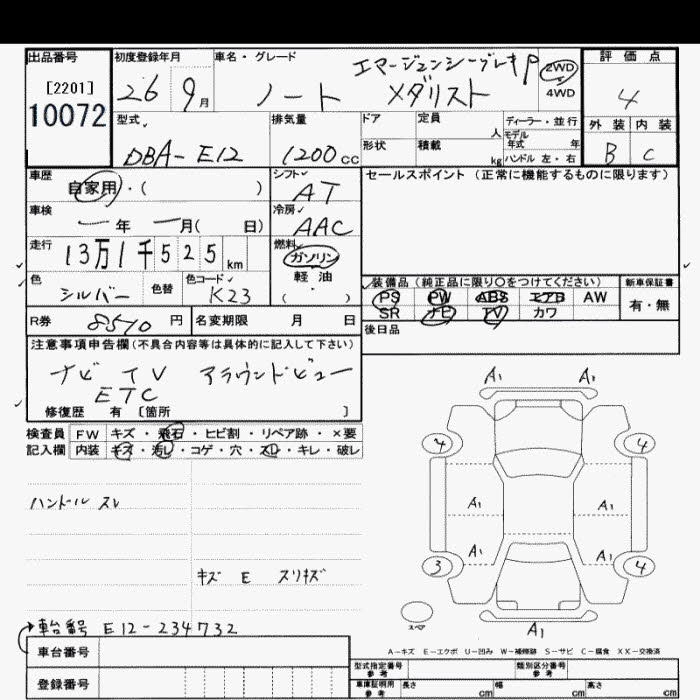 出品番号 初度登録年月 車名・グレード エマージェンシーブレーキP 2WD 評価点
[2201] 26 9月 ノート メダリスト 4WD 4
10072 型式 排気量 ドア 定員 人 ディーラー・並行 外装 内装
DBA-E12 1200cc 形状 積載 kg モデル年式 年 ハンドル 左・右 B C
車歴 自家用・( ) シフト AT セールスポイント(正常に機能するものに限ります)
車検 年 月( 日) 冷房 AAC
走行 13万1千525km 燃料 ガソリン
色 シルバー 色替 色コード K23 軽油・( ) 装備品(純正品に限り○をつけてください) 新車保証書
PS PW ABS エアB AW 有・無
R券 8510円 名変期限 月 日 SR ナビ TV カワ
注意事項申告欄(不具合内容等は具体的に記入して下さい) 後日品
ナビ TV アラウンドビュー
ETC
修復歴 有 [箇所 ]
検査員 FW キズ・飛石・ヒビ割・リペア跡・×要
記入欄 内装 キズ・汚レ・コゲ・穴・スレ・キレ・破レ
A1 A1
4 4
ハンドル スレ A1 A1
A1 A1
キズ E スリキズ 3 4
スペア
A1
車台番号 E12-234732
A-キズ E-エクボ U-凹み W-補修跡 S-サビ C-腐食 XX-交換済
車台番号 型式指定番号 参考 類別区分番号 参考
登録番号 車庫証明用 参考 長さ cm 幅 cm 高さ cm